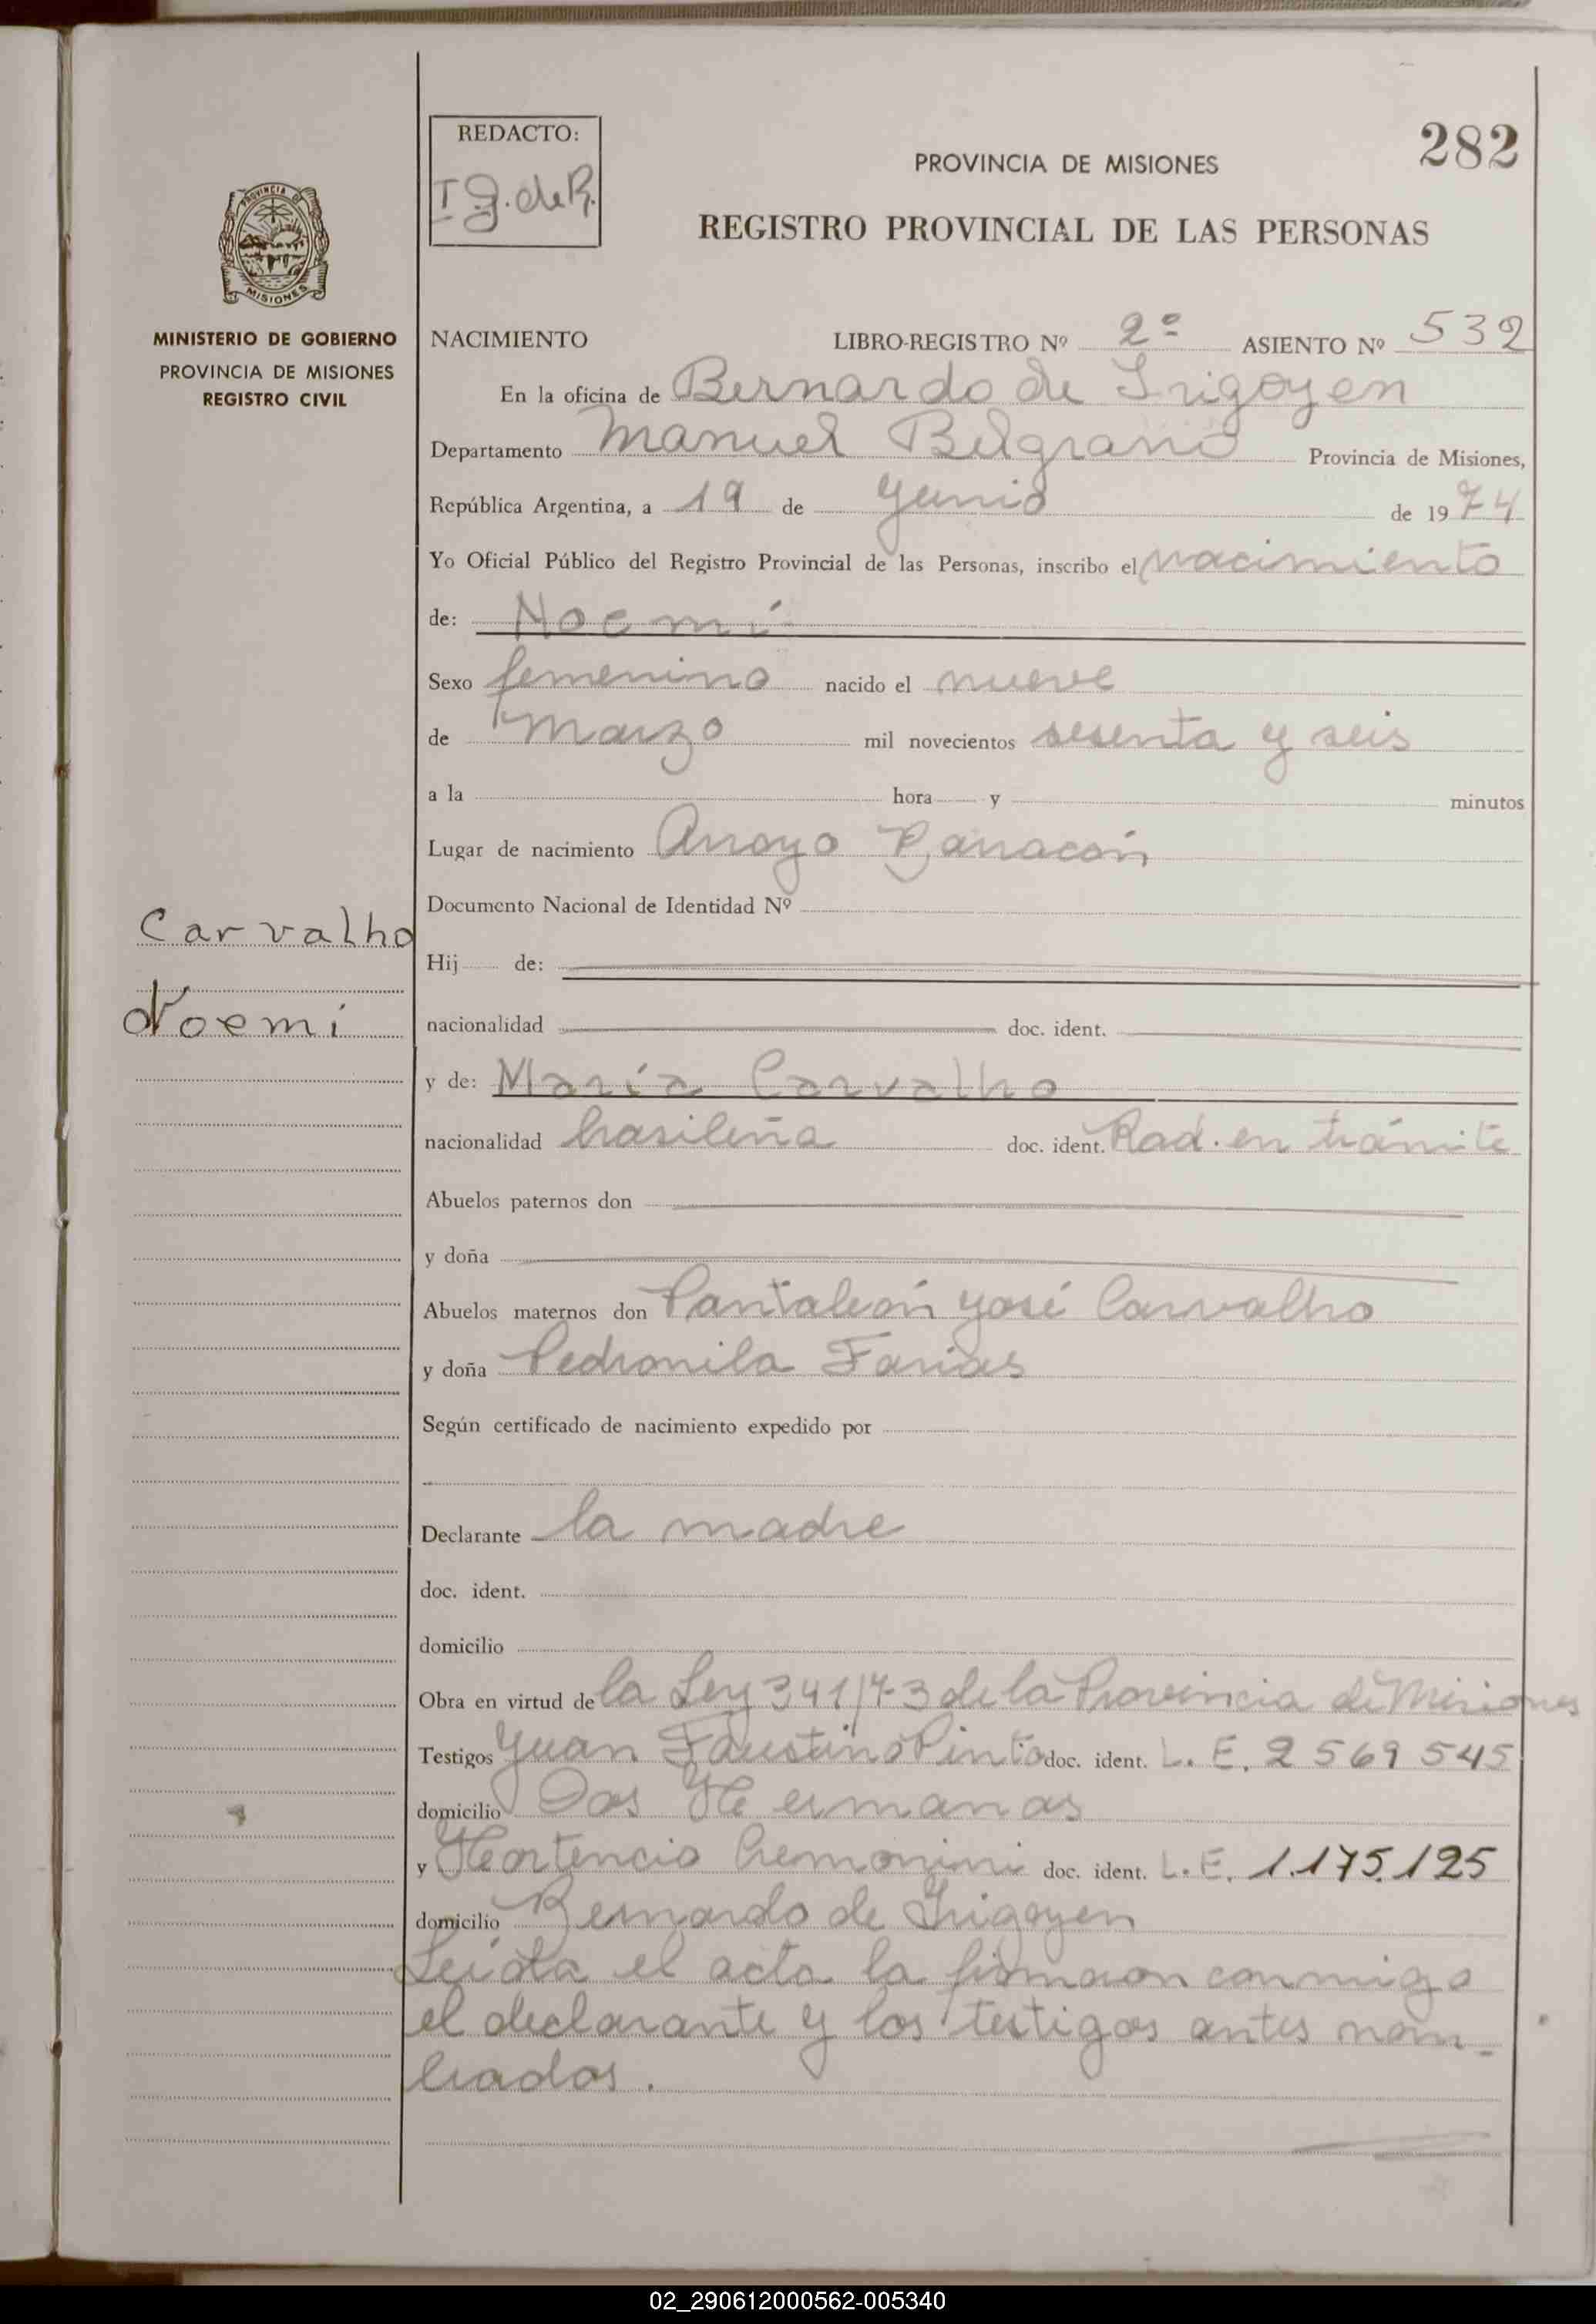 282
REDACTO:
I G. de R.
PROVINCIA DE MISIONES
REGISTRO PROVINCIAL DE LAS PERSONAS
PROVINCIA DE
MISIONES
MINISTERIO DE GOBIERNO
PROVINCIA DE MISIONES
REGISTRO CIVIL
NACIMIENTO LIBRO-REGISTRO Nº 2º ASIENTO Nº 532
En la oficina de Bernardo de Irigoyen
Departamento Manuel Belgrano Provincia de Misiones,
República Argentina, a 19 de Junio de 1974
Yo Oficial Público del Registro Provincial de las Personas, inscribo el nacimiento
de: Noemí
Sexo femenino nacido el nueve
de marzo mil novecientos sesenta y seis
a la hora y minutos
Lugar de nacimiento Arroyo
Documento Nacional de Identidad Nº
Carvalho
Hij de:
Noemi
nacionalidad doc. ident.
y de: María Carvalho
nacionalidad brasileña doc. ident. Rad. en trámite
Abuelos paternos don
y doña
Abuelos maternos don Pantaleón José Carvalho
y doña Pedronila Farias
Según certificado de nacimiento expedido por
Declarante la madre
doc. ident.
domicilio
Obra en virtud de la Ley 341/73 de la Provincia de Misiones
Testigos Juan Faustino Pinto doc. ident. L. E. 2569545
domicilio Dos Hermanas
y Hortencio Cremonini doc. ident. L. E. 1.175.125
domicilio Bernardo de Irigoyen
Leída el acta la firmaron conmigo
el declarante y los testigos antes nom-
brados.
02_290612000562-005340